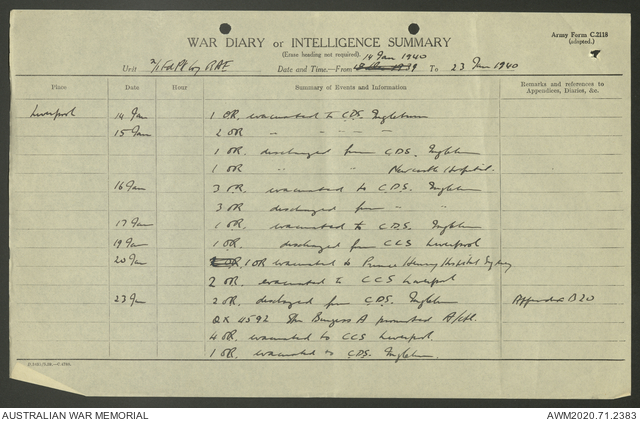 Army Form C.2118
(adapted.)
WAR DIARY or INTELLIGENCE SUMMARY
(Erase heading not required).
14 Jan 1940
Unit 2/1 Fd Pk Coy RAE Date and Time.—From 1939 To 23 Jan 1940
Place Date Hour Summary of Events and Information Remarks and references to Appendices, Diaries, &c.
Liverpool 14 Jan 1 OR. evacuated to C.D.S. Ingleburn
15 Jan 2 OR " " — — —
1 OR. discharged from C.D.S. Ingleburn
1 OR " " Newcastle Hospital.
16 Jan 3 OR. evacuated to C.D.S. Ingleburn
3 OR. discharged from " "
17 Jan 1 OR. evacuated to C.D.S. Ingleburn
19 Jan 1 OR. discharged from CCS Liverpool
20 Jan 1 OR evacuated to Prince Henry Hospital Sydney
2 OR. evacuated to CCS Liverpool
23 Jan 2 OR. discharged from C.D.S. Ingleburn Appendix B20
QX 4592 Burgess A promoted A/Cpl.
4 OR. evacuated to CCS Liverpool
1 OR. evacuated to C.D.S. Ingleburn.
AUSTRALIAN WAR MEMORIAL AWM2020.71.2383